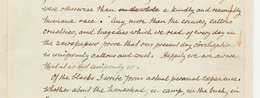 we observe than a kindly and
humane race." Any more than the courses, callous
cruelties, and tragedies which we read of every day in
the newspapers prove that our present day civilization
is uniformly callous and such. Happily we are aware
that is not uniformly so.
Of the blacks I write from actual personal experience
whether about the homestead, in camp, in the bush, in